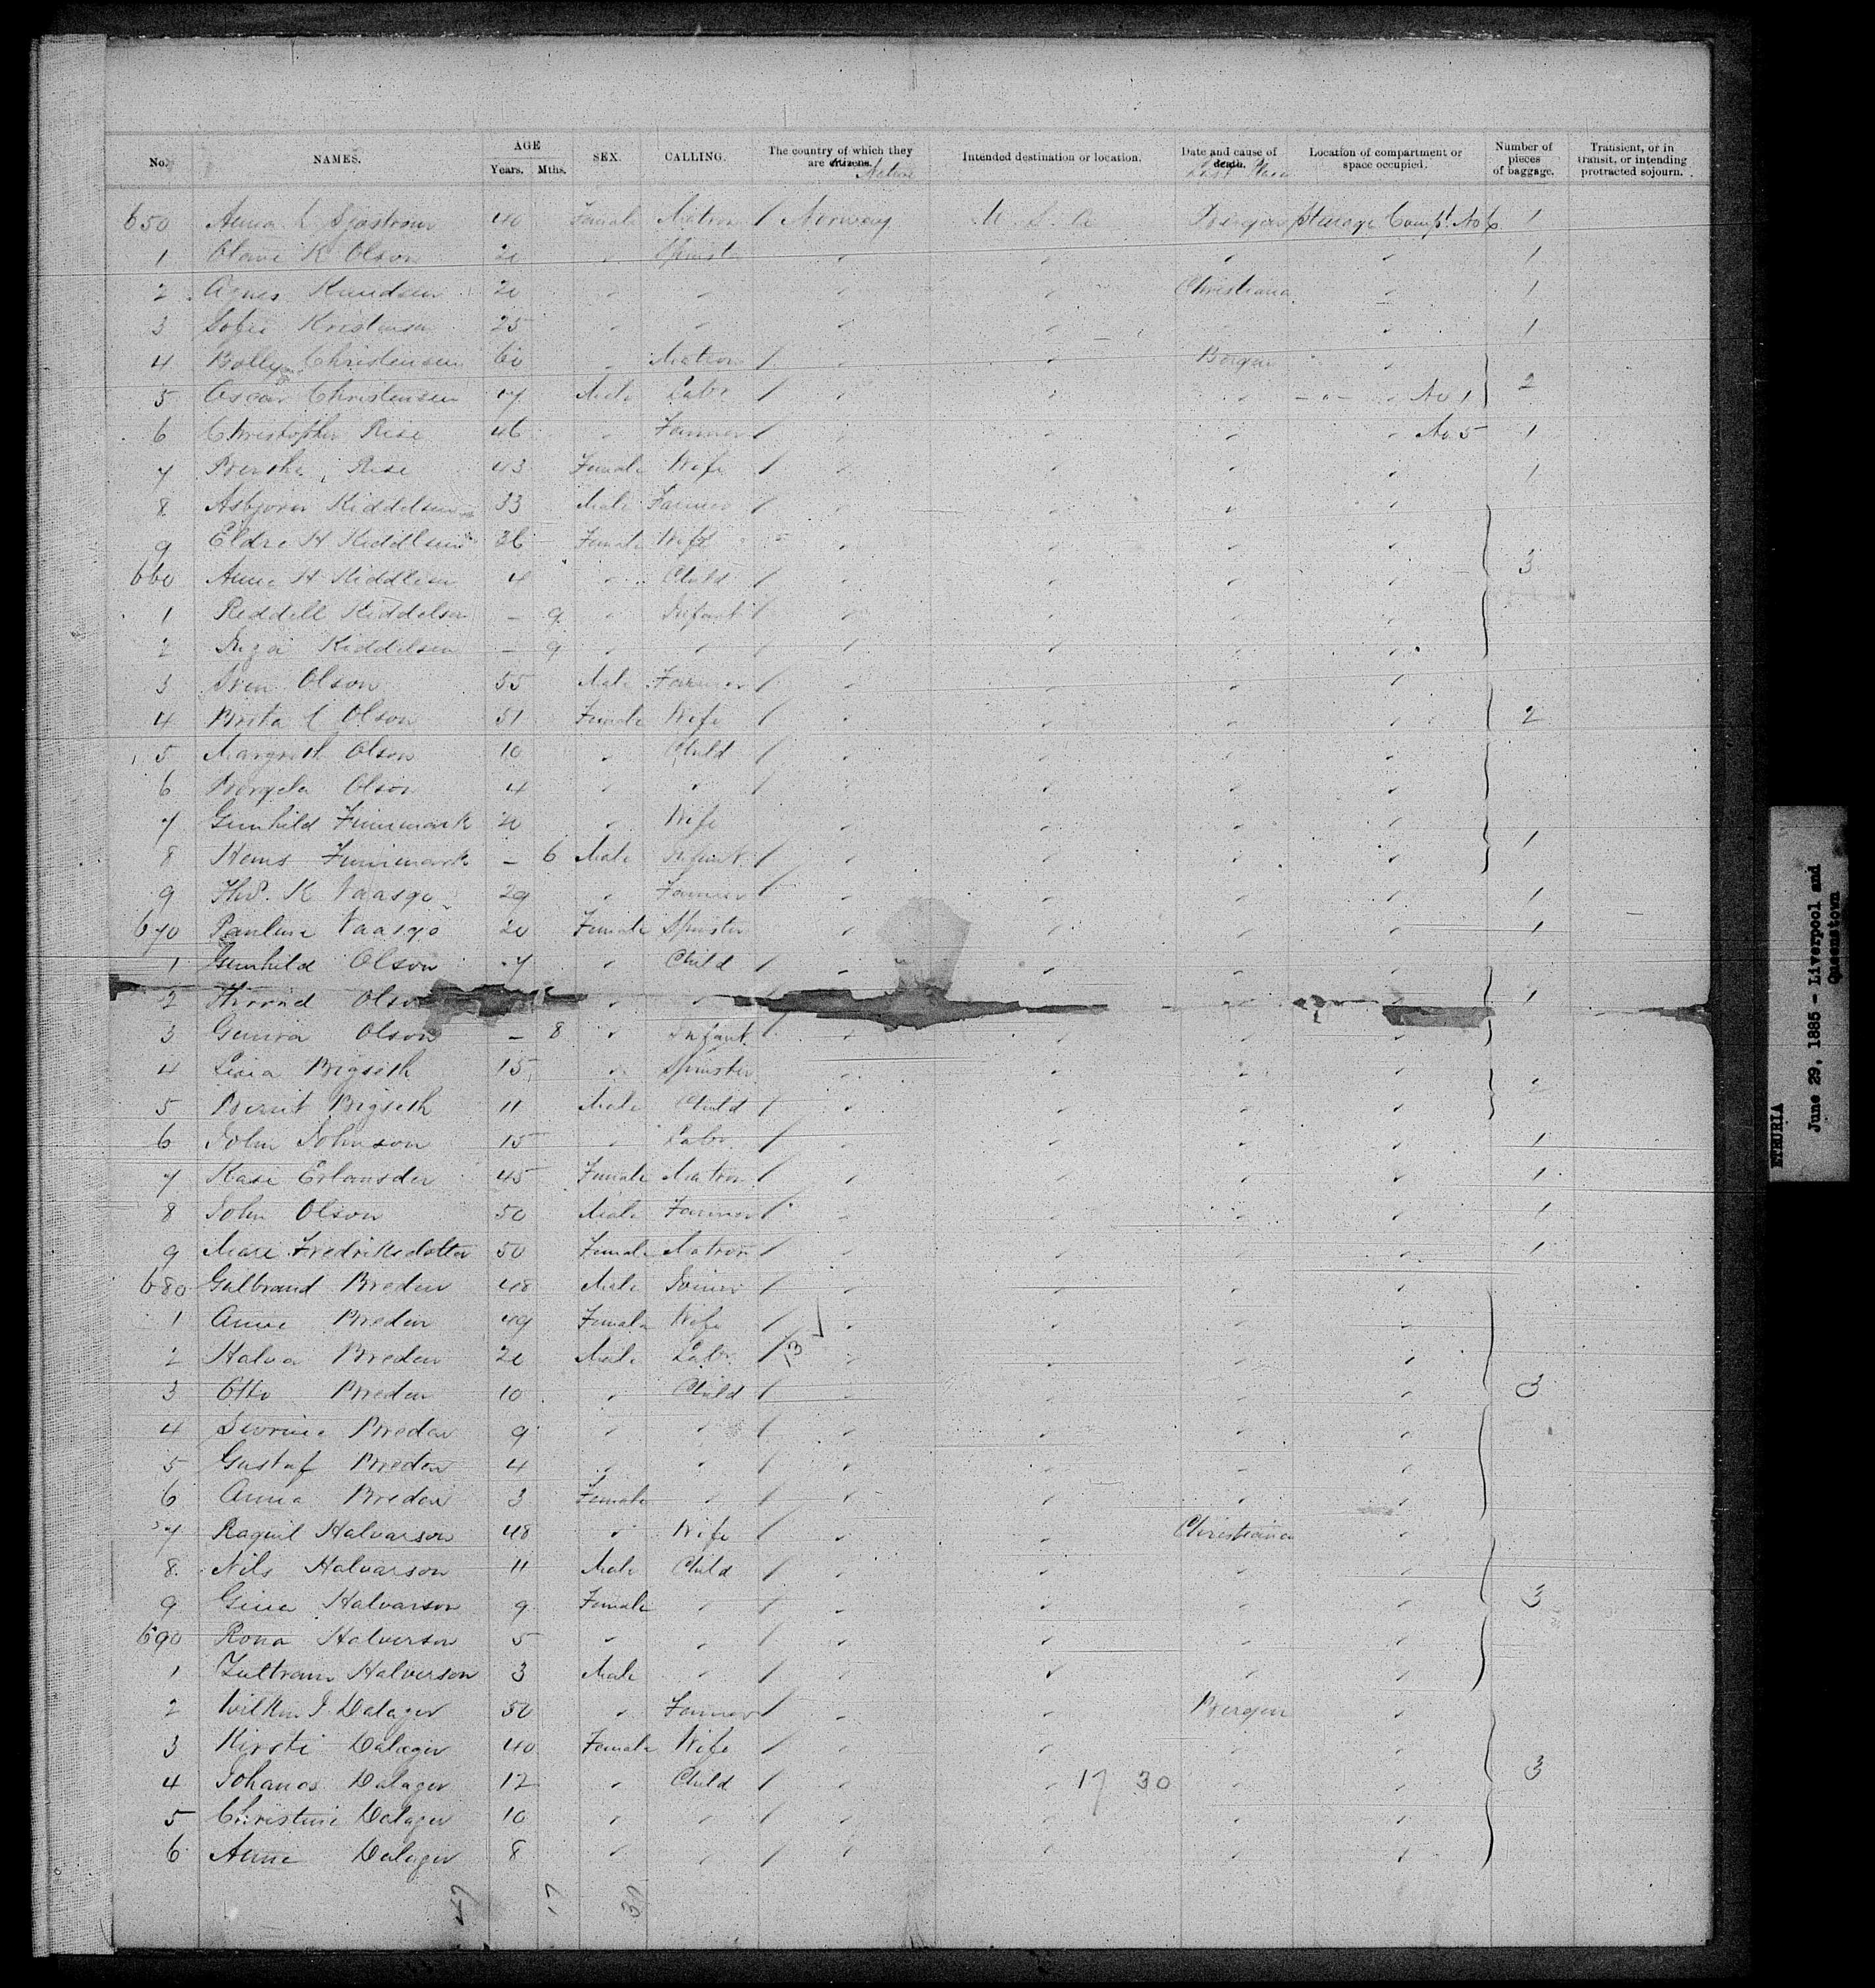 No. NAMES. AGE Years. Mths. SEX. CALLING. The country of which they are citizens. Native Intended destination or location. Date and cause of death. Last Place Location of compartment or space occupied. Number of pieces of baggage. Transient, or in transit, or intending protracted sojourn.
650 Anna C Sjostrom 40 Female Matron / Norway U. S. A Bergen Steerage Comp't No 6 1
1 Olave K Olson 20 " Spinster " " " " 1
2 Agnes Knudsen 20 " " " " Christiania " 1
3 Sofie Kristensen 25 " " " " " 1
4 Bolly Christensen 60 " Matron / " " Bergen "
5 Oscar Christensen 17 Male Labr / " " " " " No 1 2
6 Christopher Rise 46 " Farmer / " " " " No. 5 1
7 Rise 43 Female Wife / " " " " 1
8 Asbjorn Kiddelsen 33 Male Farmer / " " " "
9 Eldre H Kiddlsen 36 Female Wife " " " " "
660 Anne H Kiddlsen 4 " Child / " " " " 3
1 Reddell Kiddelsen – 9 " Infant / " " " "
2 Inga Kiddelsen – 9 " " / " " " "
3 Sven Olson 55 Male Farmer / " " " "
4 Brita C Olson 51 Female Wife / " " " " 2
5 Margreth Olson 10 " Child / " " " "
6 Olson 4 " " / " " " "
7 Gunhild Finnmark 20 " Wife " " " "
8 Hans Finnmark – 6 Male Infant / " " " " 1
9 Thos. K Vaasgo 29 " Farmer / " " " " 1
670 Pauline Vaasgo 20 Female Spinster " " " " 1
1 Gunhild Olson 7 " Child / " " " "
2 Olson " " " " 1
3 Olson – 8 " Infant / " " " "
4 Bigseth 15 " Spinster " " " "
5 Berint Bigseth 11 Male Child / " " " " 2
6 John Johnson 15 " Labr / " " " " 1
7 Kari Erlamsder 45 Female Matron / " " " " 1
8 John Olson 50 Male Farmer / " " " " 1
9 Mari Fredriksdotter 50 Female Matron / " " " " 1
680 Gulbrand Breden 48 Male Joiner / " " " "
1 Anne Breden 49 Female Wife / " " " "
2 Halva Breden 20 Male Labr / 13 " " " "
3 Otto Breden 10 " Child / " " " " 3
4 Breden 9 " " / " " " "
5 Gustaf Breden 4 " " / " " " "
6 Anna Breden 3 Female " / " " " "
7 Ragnil Halvarson 48 " Wife / " " Christiania "
8 Nils Halvarson 11 Male Child / " " " "
9 Gina Halvarson 9 Female " / " " " " 3
690 Rona Halverson 5 " " / " " " "
1 Halverson 3 Male " / " " " "
2 J. Dalager 50 " Farmer / " " Bergen "
3 Kirsti Dalager 40 Female Wife / " " " "
4 Johanos Dalager 12 " Child / " " 17 30 " " 3
5 Christine Dalager 10 " " / " " " "
6 Anne Dalager 8 " " / " " " "
47 17 30
ETRURIA
June 29, 1885 - Liverpool and
Queenstown